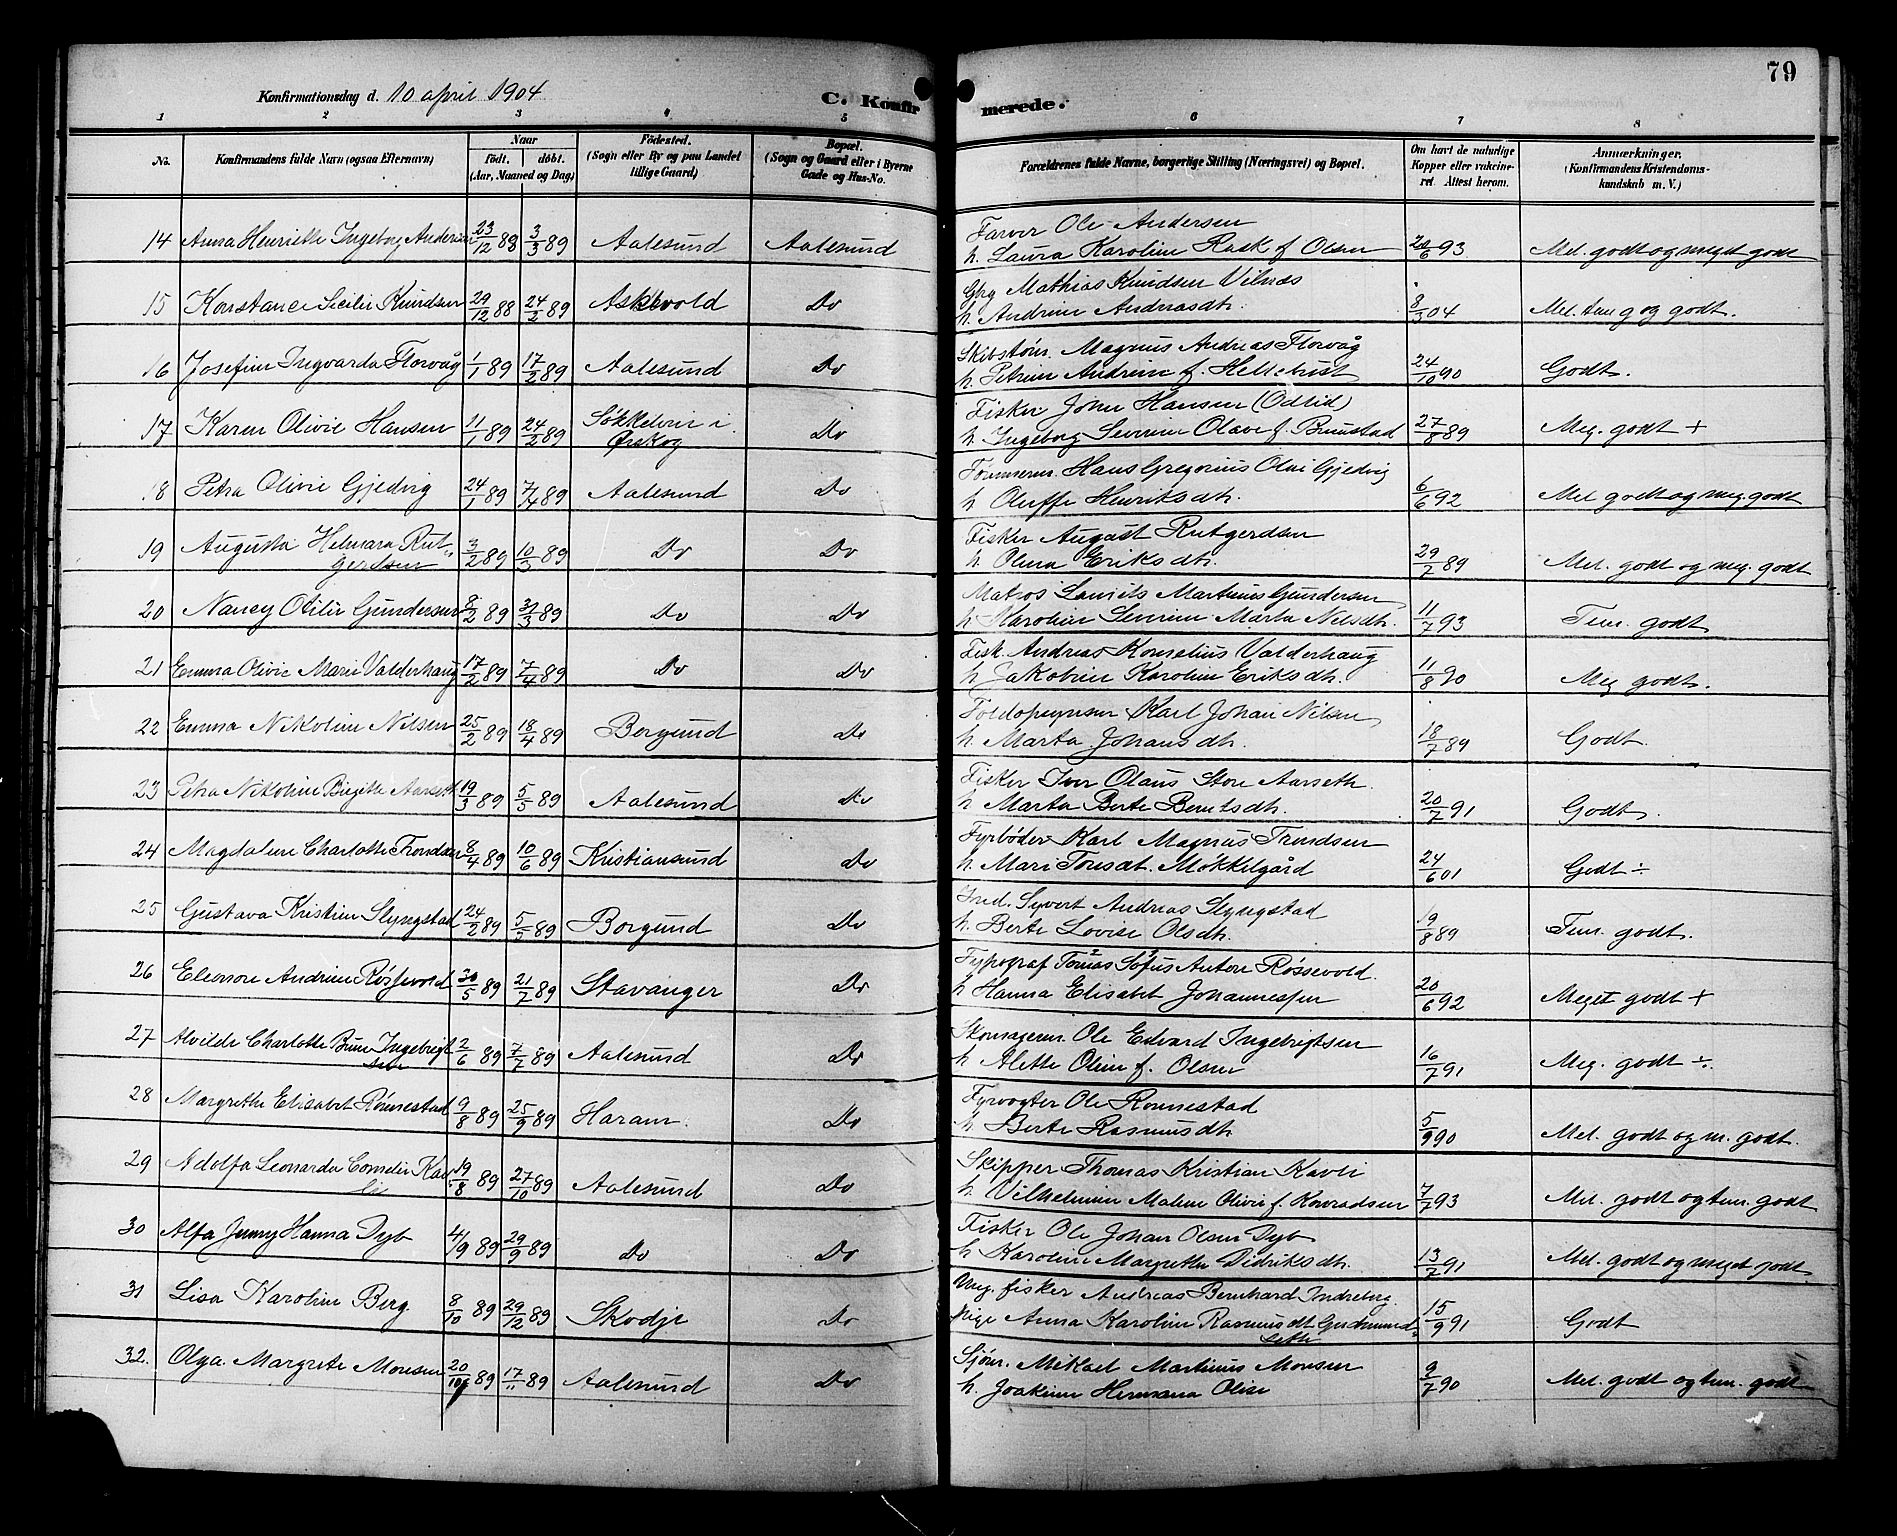 79
Konfirmationsdag d. 10 april 1904
C. Konfirmerede.
1 2 3 4 5 6 7 8
No.
Konfirmandens fulde Navn (ogsaa Efternavn)
Naar
født. døbt.
(Aar, Maaned og Dag)
Fødested.
(Sogn eller By og paa Landet
tillige Gaard)
Bopæl.
(Sogn og Gaard eller i Byerne
Gade og Hus-No.
Forældrenes fulde Navne, borgerlige Stilling (Næringsvei) og Bopæl.
Om havt de naturlige
Kopper eller vakcine-
ret. Attest herom.
Anmærkninger.
(Konfirmandens Kristendoms-
kundskab m. V.)
Farver Ole Andersen
14 Anna Henriette Ingeborg Andersen 23/12 88 3/3 89 Aalesund Aalesund h. Laura Karoline Rask f. Olsen 20/6 93 Mel. godt og meget godt
Gbrg Mathias Knudsen Vilnæs
15 Konstance Secilie Knudsen 29/12 88 24/2 89 Askevold Do h. Andrine Andersdtr. 8/3 04 Mel. tem g og godt.
Skibstøm. Magnus Andreas Florvåg
16 Josefine Ingvarda Florvåg 1/1 89 17/2 89 Aalesund Do h. Petrine Andrine f. Hellebust 24/10 90 Godt.
Fisker John Hansen (Ødlid)
17 Karen Olivie Hansen 11/1 89 24/2 89 Søkkelvin i Ørskog Do h. Ingeborg Severine Olave f. Brunstad 27/8 89 Meg. godt +
Tømmerm. Hans Gregorius Olai Gjedvig
18 Petra Olivie Gjedvig 24/1 89 7/4 89 Aalesund Do h Oluffe Henriksdtr. 6/6 92 Mel godt og meg. godt
Fisker August Rutgerdsen
19 Augusta Helmara Rut- 3/2 89 10/3 89 Do Do h. Olina Eriksdtr. 29/7 89 Mel. godt og meg. godt
gerdsen
Matros Laurits Martinus Gundersen
20 Nancy Otilie Gundersen 8/2 89 31/3 89 Do Do h Karoline Severine Marta Nilsdtr. 11/7 93 Tem. godt
Fisk. Andreas Kornelius Valderhaug
21 Emma Olivie Marie Valderhaug 17/2 89 7/4 89 Do Do h Jakobine Karoline Eriksdtr. 11/8 90 Meg godt.
Toldopsynsm Karl Johan Nilsen
22 Emma Nikoline Nilsen 25/2 89 18/4 89 Borgund Do h. Marta Johansdtr. 18/7 89 Godt.
Fisker Iver Olaus Store Aarseth
23 Petra Nikoline Birgitte Aarseth 19/3 89 5/5 89 Aalesund Do h Marta Berte Berntsdtr. 20/7 91 Godt.
Fyrbøder Karl Magnus Trondsen
24 Magdalene Charlotte Trondsen 8/4 89 10/6 89 Kristiansund Do h. Mari Tonesdt. Møkkelgård 24/6 01 Godt ÷
Ind. Syvert Andreas Slyngstad
25 Gustava Kristine Slyngstad 24/2 89 5/5 89 Borgund Do h. Berte Lovise Olsdtr. 19/8 89 Tem. godt.
Typograf Tomas Sofus Anton Røssevold
26 Eleonore Andrine Røssevold 30/5 89 21/7 89 Stavanger Do h Hanna Elisabet Johannessen 20/6 92 Meget godt +
Skomagerm. Ole Edvard Ingebrigtsen
27 Alvilde Charlotte Bruun Ingebrigt 2/6 89 7/7 89 Aalesund Do h Alette Oline f. Olsen 16/7 91 Meg. godt ÷.
sen
Fyrvogter Ole Rønnestad
28 Margrethe Elisabet Rønnestad 9/8 89 25/9 89 Haram. Do h Berte Rasmusdtr. 5/9 90 Mel. godt og m. godt.
Skipper Thomas Kristian Kavli
29 Adolfa Leonarda Cornelie Kav 19/8 89 27/10 89 Aalesund Do h. Vilhelmine Malene Olivie f. Konradsen 7/7 93 Mel. godt og tem. godt
li
Fisker Ole Johan Olsen Dyb
30 Alfa Jenny Hanna Dyb 4/9 89 29/9 89 Do Do h Karoline Margrethe Didriksdtr. 13/7 91 Mel. godt og meget godt
Ung. fisker Andreas Bernhard Indreberg
31 Lisa Karoline Berg. 8/10 89 29/12 89 Skodje Do pige Anna Karoline Rasmusdt Gudmund 15/9 91 Godt
seth
Sjøm. Mikael Martinus Monsen
32. Olga Margrete Monsen 20/10 89 17/11 89 Aalesund Do h. Joakime Hermana Olise 9/7 90 Mel. godt og tem. godt